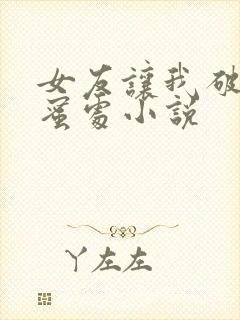 女友讓我破
蜜處小説
丫左左